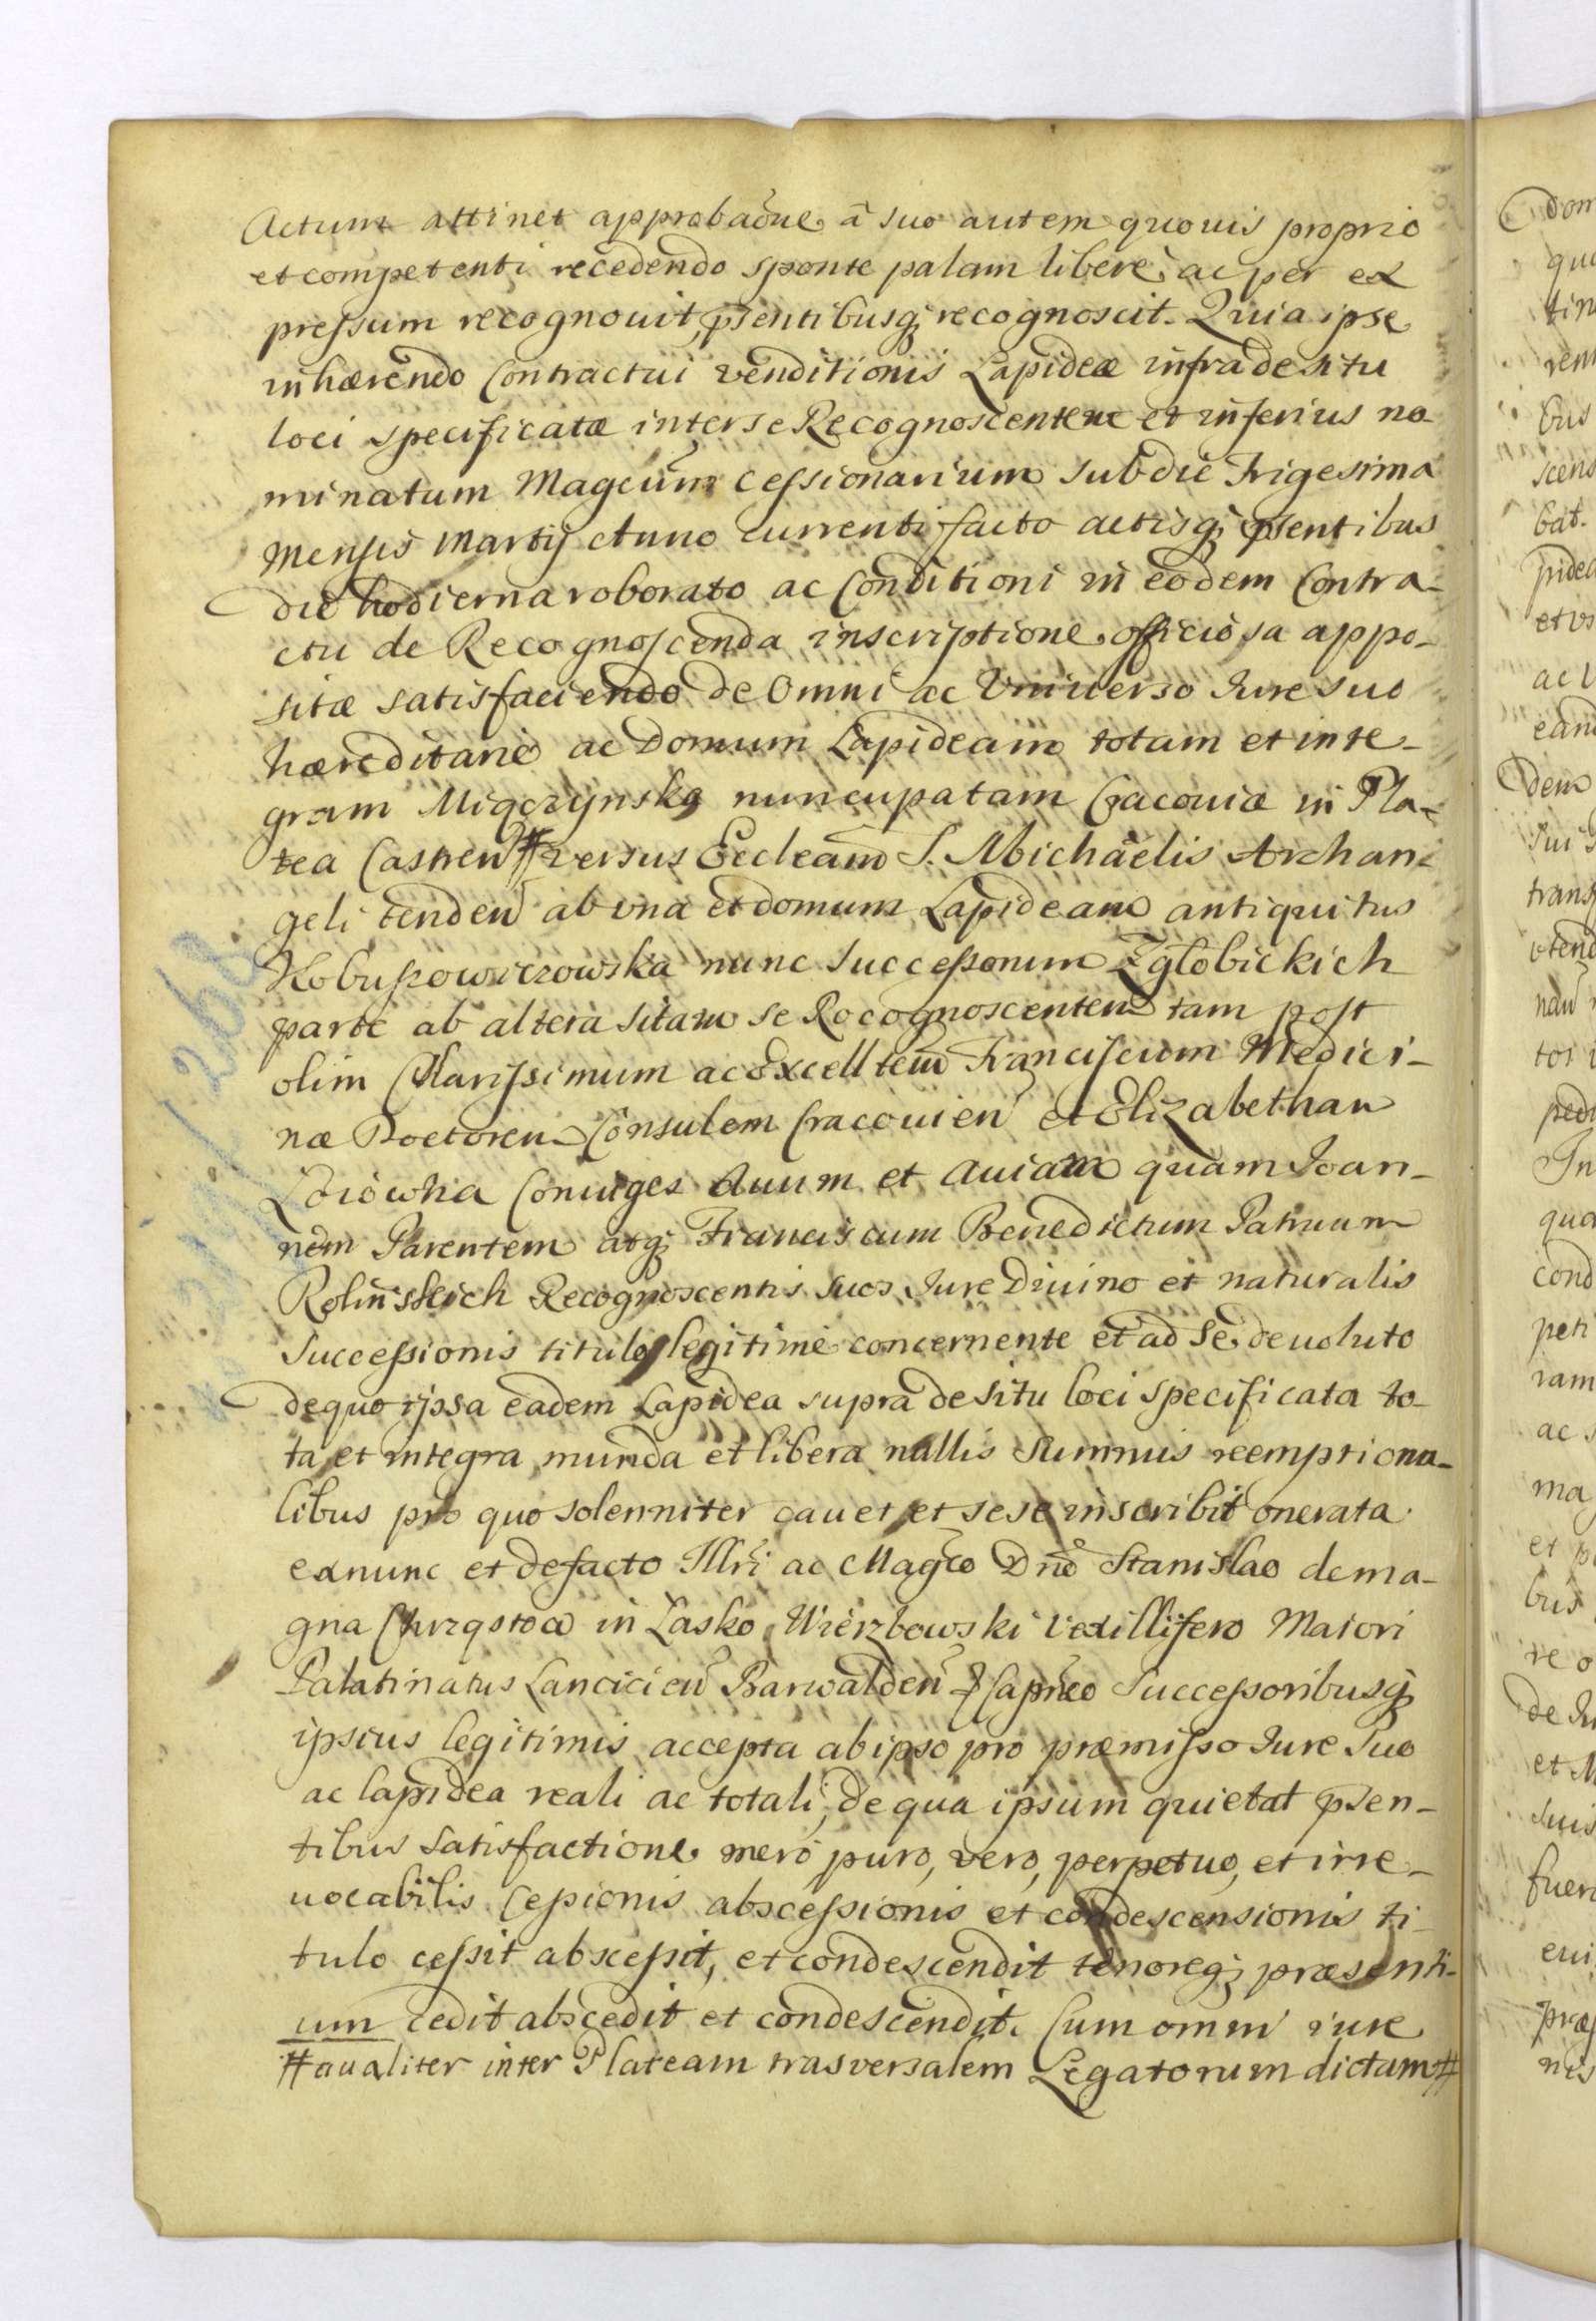 Actum attinet approbaõne ã suo autem quouis proprio
et competenti recedendo sponte palam liberè ac per ex
pressum recognouit, psentibusq; recognoscit. Quia ipse
inhærendo Contractui venditionis Lapideæ infra de situ
loci specificatæ inter se Recognoscentem et inferius no-
minatum Magcum Cessionarium sub die Trigesima
Mensis Martij Anno currenti facto actisq; psentibus
die hodierna roborato ac Conditioni in eodem Contra-
ctu de Recognoscenda inscriptione officiosa appo-
sitæ satisfaciendo de Omni ac Vniuerso Iure suo
hæreditario ac Domum Lapideam totam et inte-
gram Miączynską nuncupatam Cracouiæ in Pla-
tea Castren # versus Eccleam S. Michaëlis Archan-
geli tenden ab vna et domum Lapideam antiquitus
Kobuszowiczowska nunc Successorum Zglobickich
parte ab altera sitam se Rocognoscentem tam post
olim Clarissimum ac Excelltem Franciscum Medici-
næ Doctorem Consulem Cracouien et Elizabetham
Coniuges Auum et Auiam quam Ioan-
nem Parentem atq; Franciscum Benedictum Patruum
Rolinskich Recognoscentis suos Iure Diuino et naturalis
Successionis titulo legitimè concernente et ad se deuoluto
de quo ipsa eadem Lapidea supra de situ loci specificata to-
ta et integra munda et libera nullis Summis reemptiona-
libus pro quo solenniter cauet et sese inscribit onerata
ex nunc et de facto Illri ac Magco Dno Stanislao de ma-
gna Chrząstow in Lasko Wierzbowski Vexillifero Maiori
Palatinatus Lancicien Barwalden & Capneo Successoribusq;
ipsius legitimis accepta ab ipso pro præmisso Iure suo
ac lapidea reali ac totali, de qua ipsum quietat psen-
tibus satisfactione mero puro, vero, perpetuo, et irre-
uocabilis Cessionis abscessionis et condescensionis ti-
tulo cessit abscessit, et condescendit tenoreq; præsenti-
um cedit abscedit et condescendit. Cum omni iure
# aualiter inter Plateam trasversalem Legatorum dictam #